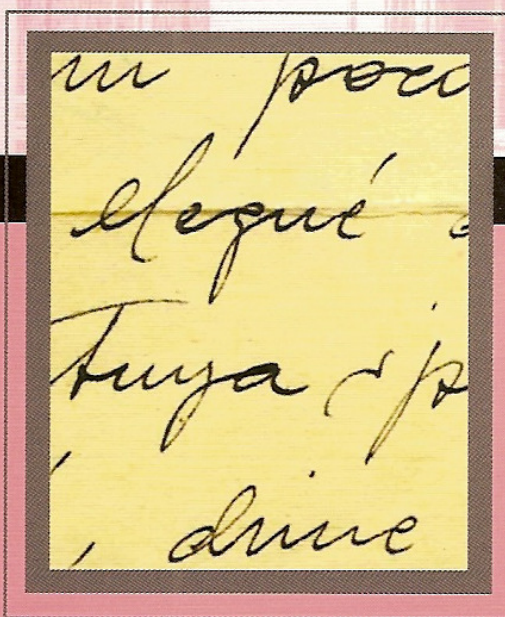 un poco
llegué
tuya ¿p
, dime